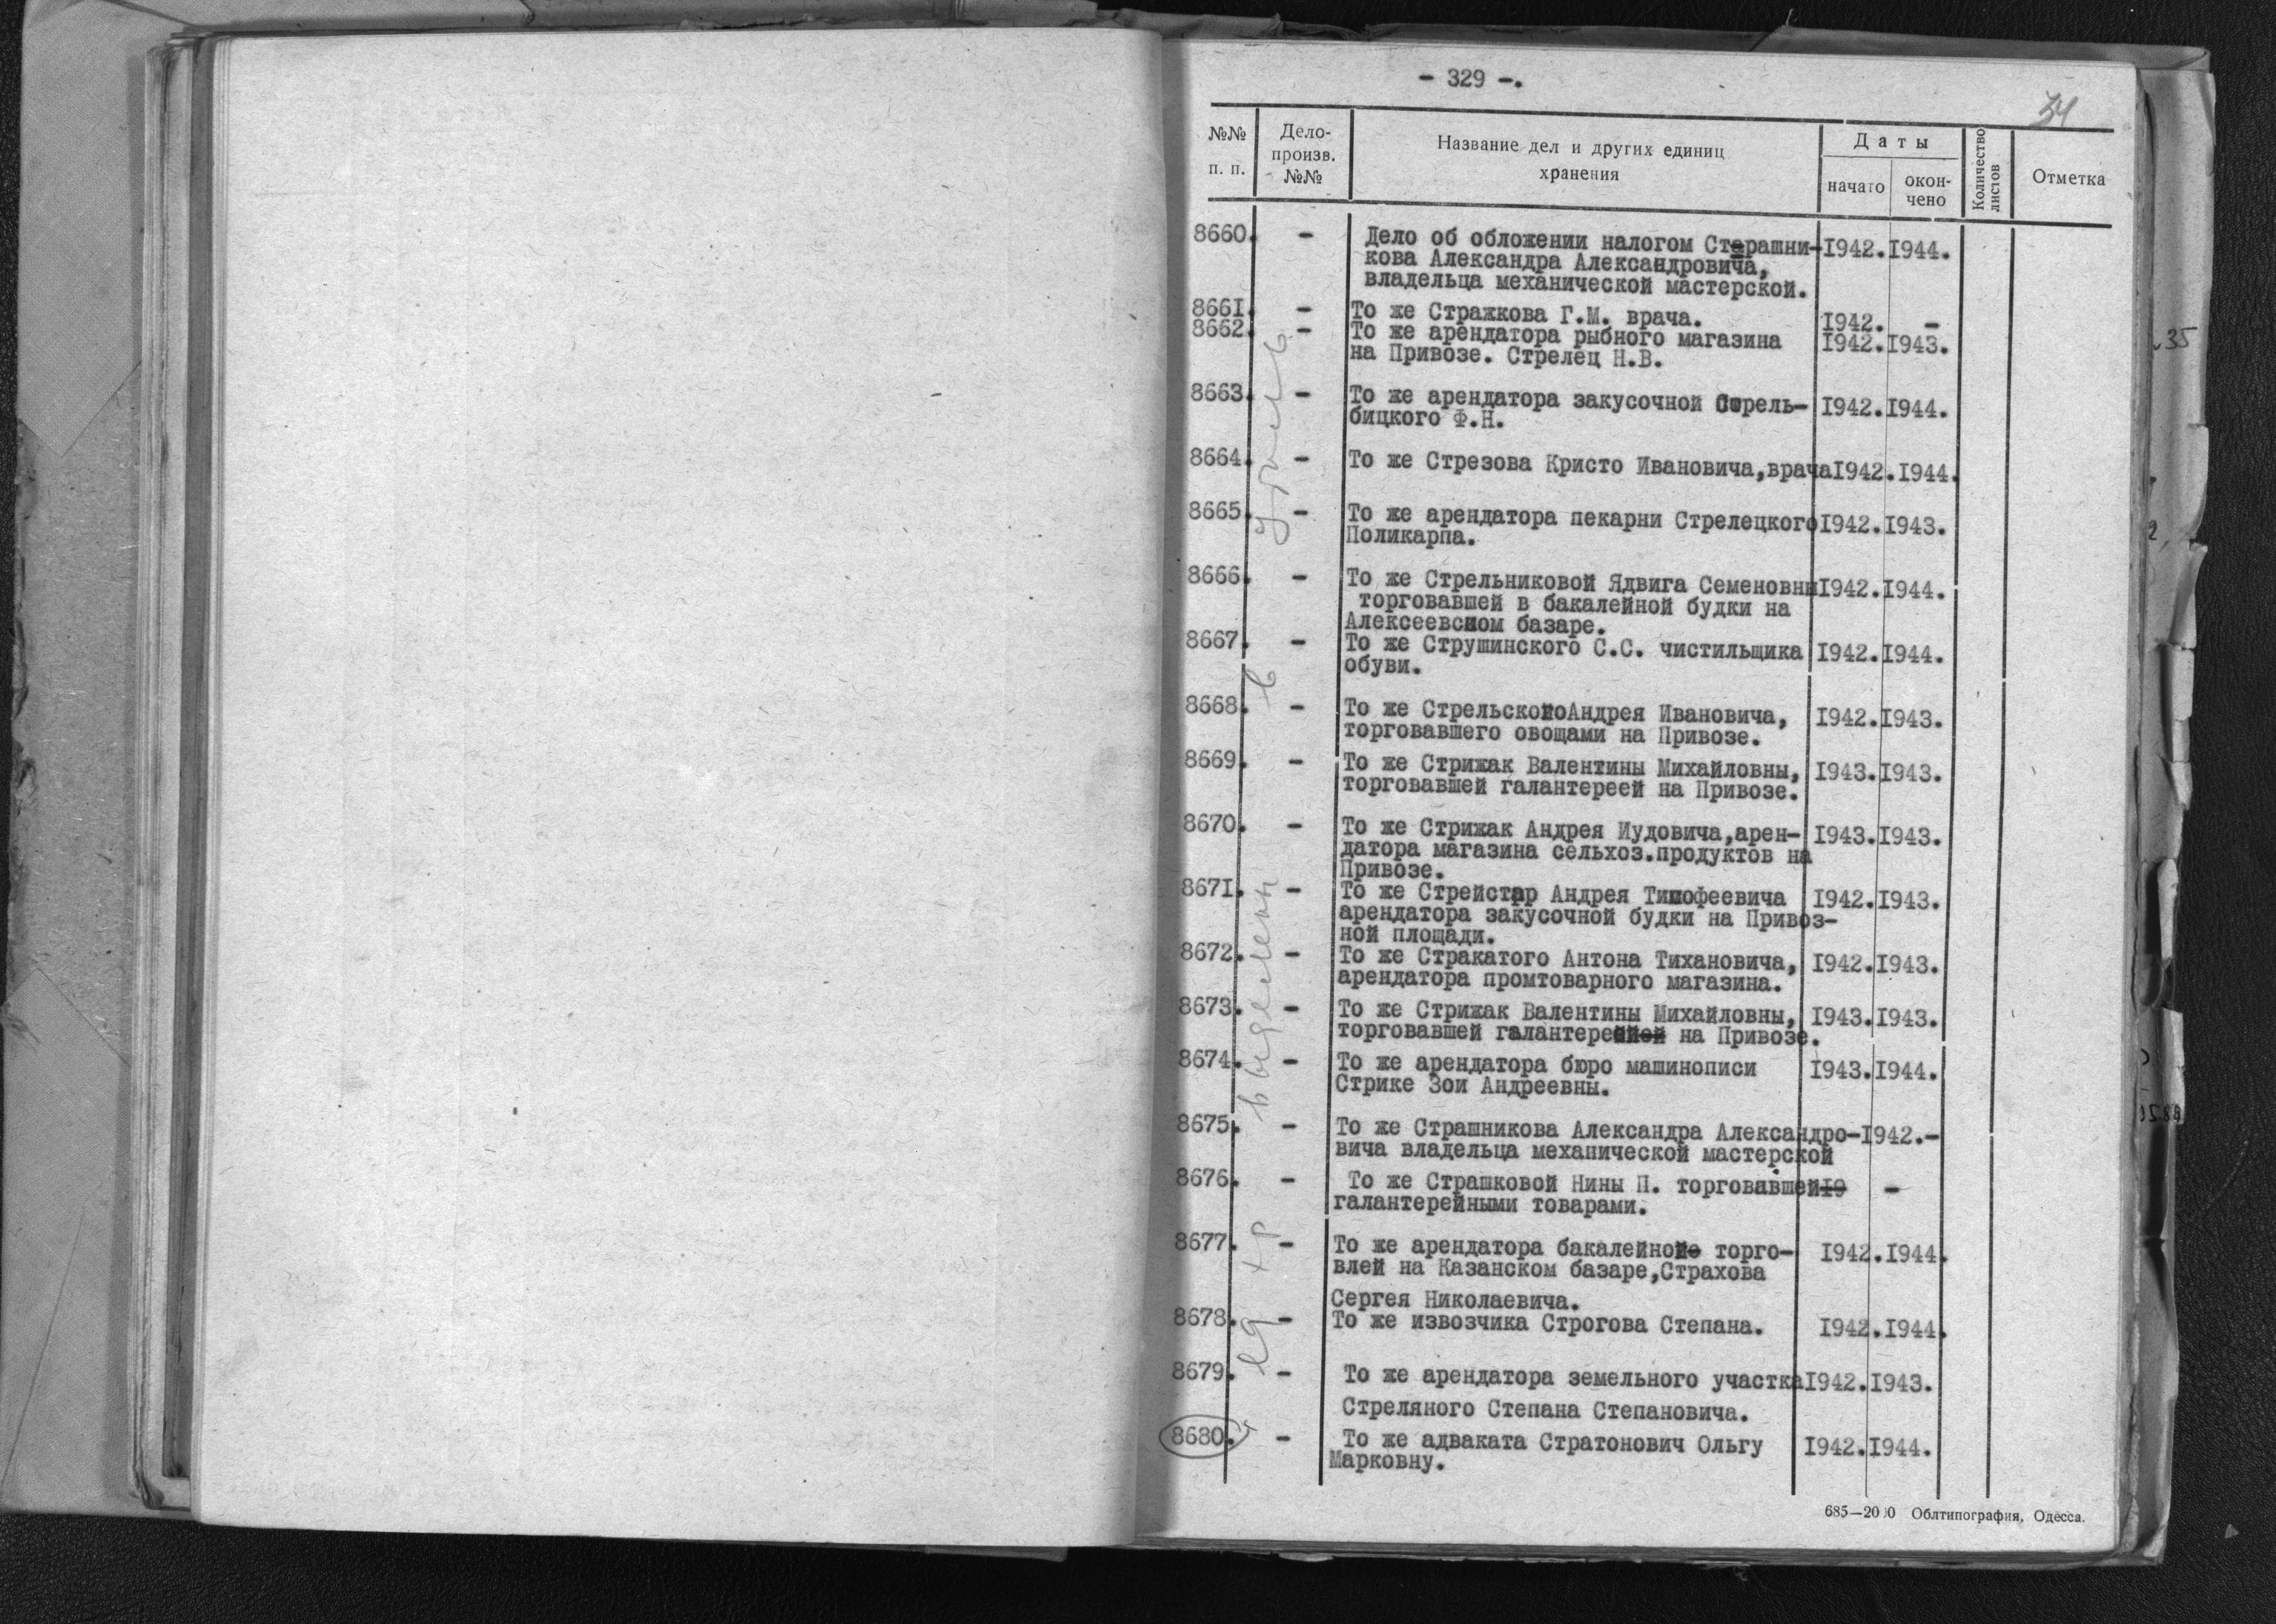 - 329 -.
34
№№ п. п.
Дело-произв. №№
Название дел и других единиц хранения
Даты
начато
окончено
Количество листов
Отметка
8660. - Дело об обложении налогом Старашни- 1942. 1944.
кова Александра Александровича,
владельца механической мастерской.
8661. - То же Стражкова Г.М. врача. 1942. -
8662. - То же арендатора рыбного магазина 1942. 1943.
на Привозе. Стрелец Н.В.
8663. - То же арендатора закусочной Стрель- 1942. 1944.
бицкого Ф.Н.
8664. - То же Стрезова Кристо Ивановича,врача 1942. 1944.
8665. - То же арендатора пекарни Стрелецкого 1942. 1943.
Поликарпа.
8666. - То же Стрельниковой Ядвига Семеновны 1942. 1944.
торговавшей в бакалейной будки на
Алексеевском базаре.
8667. - То же Струшинского С.С. чистильщика 1942. 1944.
обуви.
8668. - То же Стрельского Андрея Ивановича, 1942. 1943.
торговавшего овощами на Привозе.
8669. - То же Стрижак Валентины Михайловны, 1943. 1943.
торговавшей галантереей на Привозе.
8670. - То же Стрижак Андрея Иудовича,арен- 1943. 1943.
датора магазина сельхоз.продуктов на
Привозе.
8671. - То же Стрейстар Андрея Тимофеевича 1942. 1943.
арендатора закусочной будки на Привоз-
ной площади.
8672. - То же Стракатого Антона Тихановича, 1942. 1943.
арендатора промтоварного магазина.
8673. - То же Стрижак Валентины Михайловны, 1943. 1943.
торговавшей галантереей на Привозе.
8674. - То же арендатора бюро машинописи 1943. 1944.
Стрике Зои Андреевны.
8675. - То же Страшникова Александра Александро- 1942. -
вича владельца механической мастерской
8676. - То же Страшковой Нины П. торговавшей 19 -
галантерейными товарами.
8677. - То же арендатора бакалейной торго- 1942. 1944.
влей на Казанском базаре,Страхова
Сергея Николаевича.
8678. - То же извозчика Строгова Степана. 1942. 1944.
8679. - То же арендатора земельного участка 1942. 1943.
Стреляного Степана Степановича.
8680. - То же адваката Стратонович Ольгу 1942. 1944.
Марковну.
685—2000 Облтипография, Одесса.
35